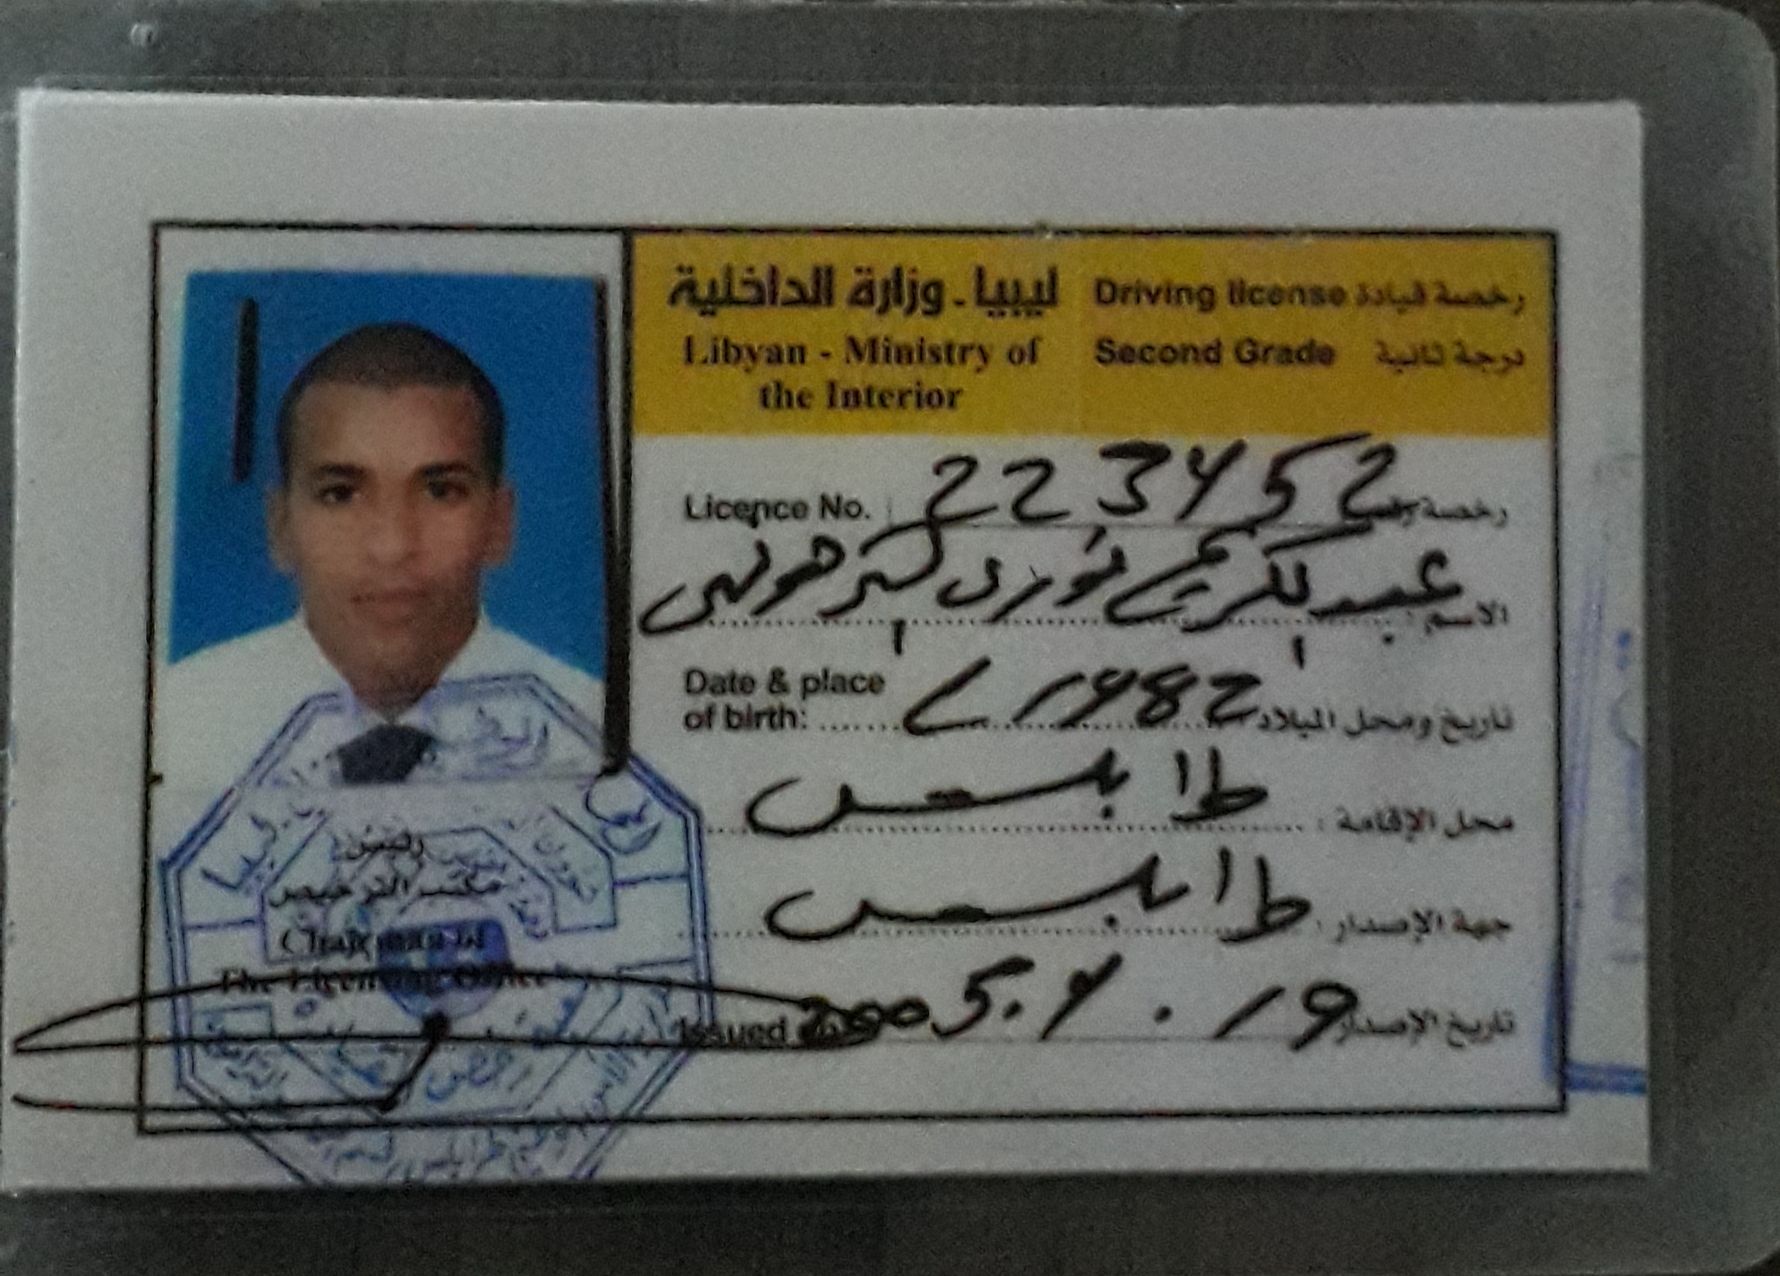 ليبيا - وزارة الداخلية
Libyan - Ministry of
the Interior
Driving license رخصة قيادة
Second Grade درجة ثانية
Licence No. 223452 رخصة رقم
الاسم : عبد الكريم نوري
Date & place
of birth: 1982 تاريخ ومحل الميلاد
محل الإقامة : طرابلس
جهة الإصدار : طرابلس
Issued 2005.4.19 تاريخ الإصدار
ليبيا
رئيس
مكتب الترخيص
Chairman of
The Licensing Office